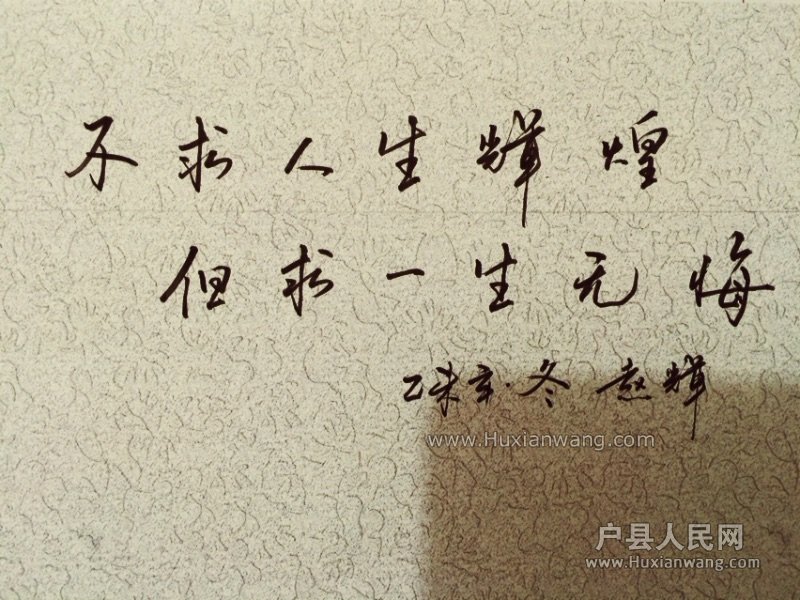 不求人生辉煌
但求一生无悔
乙未年·冬 赵辉
www.Huxianwang.com
户县人民网
www.Huxianwang.com